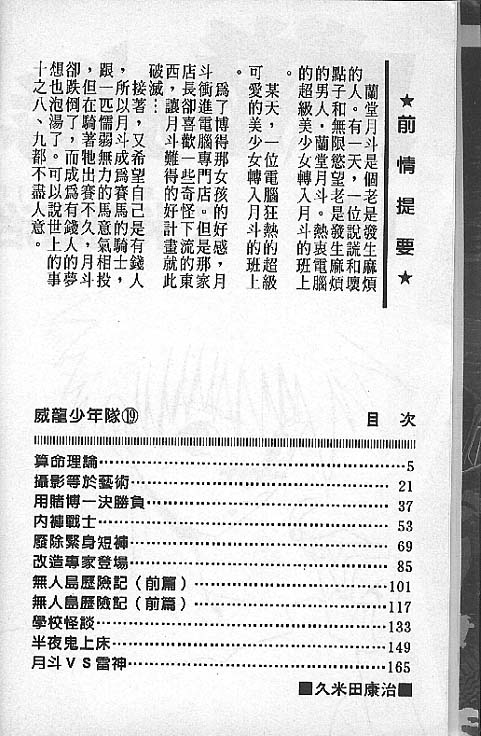 ★前情提要★
蘭堂月斗是個老是發生麻煩
的人。有一天，一位說謊和壞
點子和無限慾望老是發生麻煩
的男人，蘭堂月斗。熱衷電腦
的超級美少女轉入月斗的班上
。
某天，一位電腦狂熱的超級
可愛的美少女轉入月斗的班上
。
為了博得那女孩的好感，月
斗衝進電腦專門店。但是那家
店長卻喜歡一些奇怪下流的東
西，讓月斗難得的好計畫就此
破滅…
接著，又希望自己是有錢人
，所以月斗成為賽馬的騎士，
跟一匹懦弱無力的馬意氣相投
，但在騎著牠出賽不久，月斗
卻跌倒了，而成為有錢人的夢
想也泡湯了。可以說世上的事
十之八、九都不盡人意。
威龍少年隊⑲ 目次
算命理論…5
攝影等於藝術…21
用賭博一決勝負…37
内褲戰士…53
廢除緊身短褲…69
改造專家登場…85
無人島歷險記（前篇）…101
無人島歷險記（前篇）…117
學校怪談…133
半夜鬼上床…149
月斗VS雷神…165
■久米田康治■